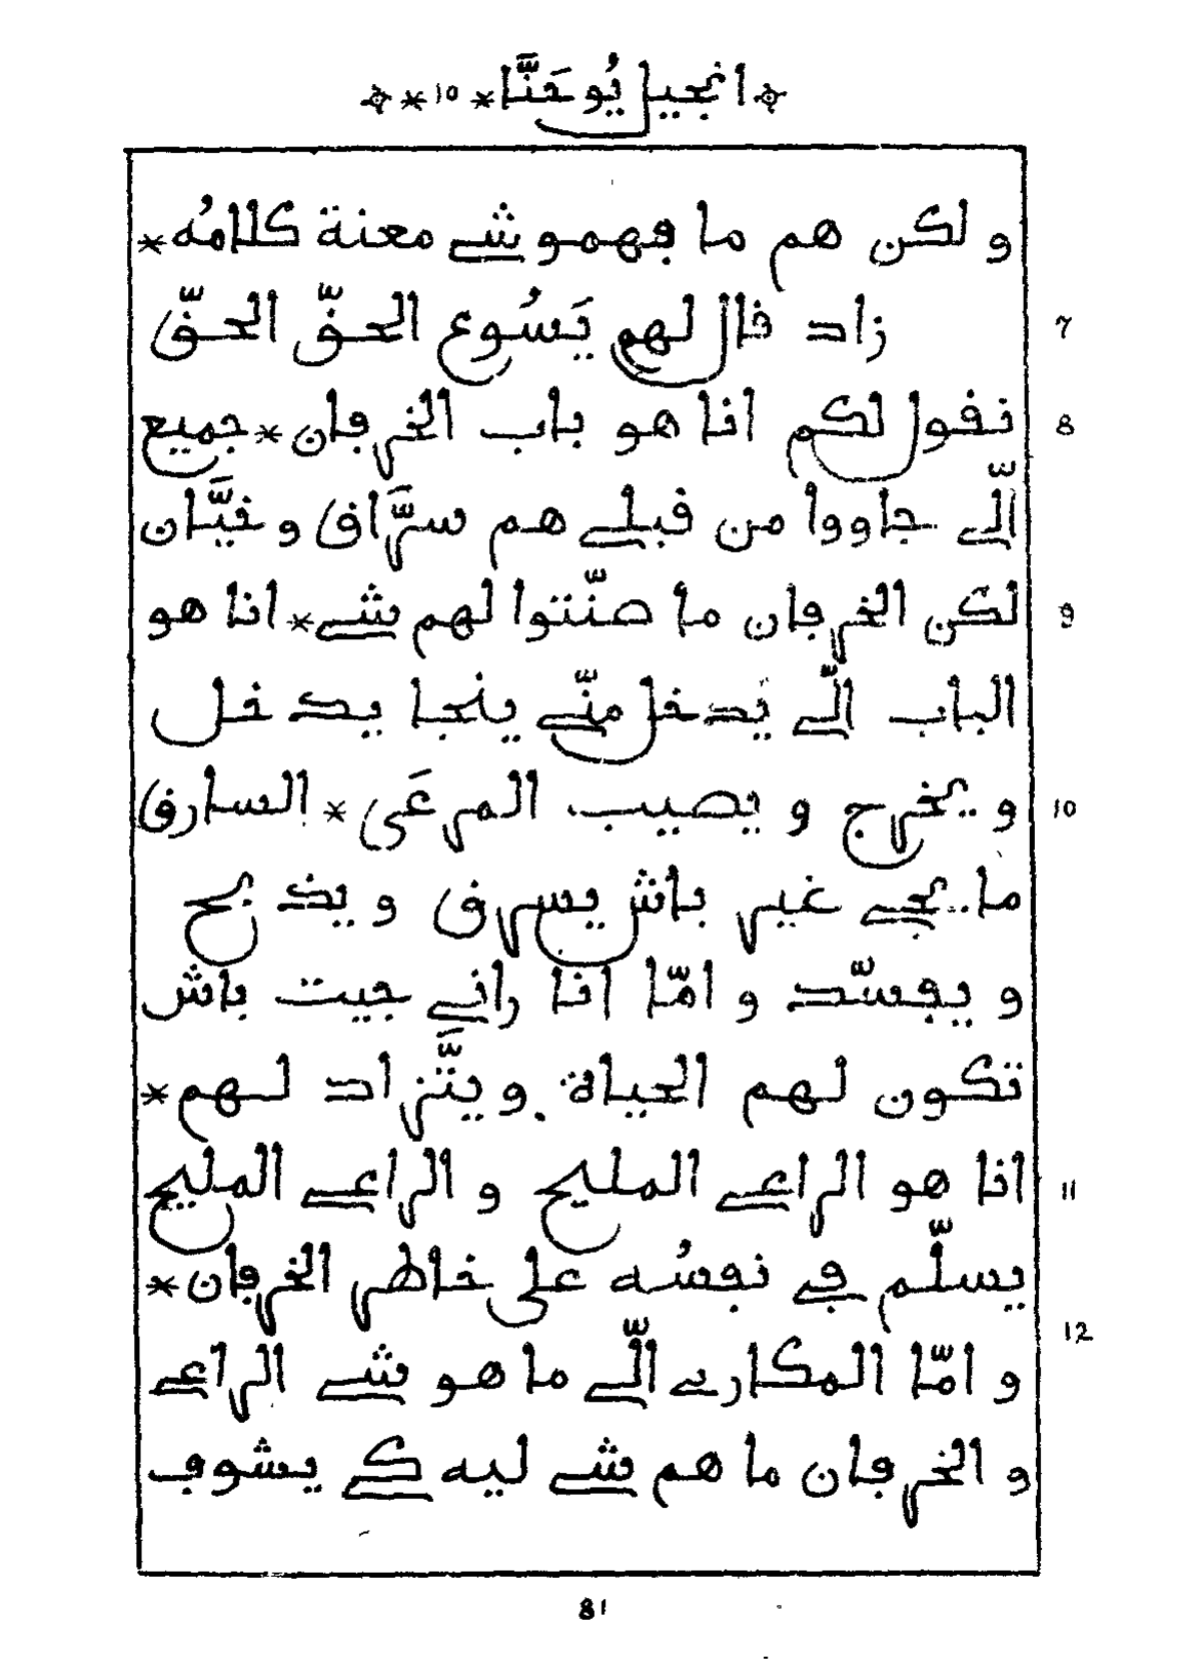 انجيل يُوحَنَّا * ١٥ *
و لكن هم ما فهموشي معنة كلامُه *
7 زاد قال لهم يَسُوع الحقّ الحقّ
8 نقول لكم انا هو باب الخرفان * جميع
الّي جاووا من قبلي هم سرَّاق و خيَّان
9 لكن الخرفان ما صنّتوا لهم شي * انا هو
الباب الّي يَدخل منّي ينجا يدخل
10 و يخرج و يصيب المرعَى * السارق
ما يجي غير باش يسرق و يذبح
و يفسّد و امّا انا راني جيت باش
تكون لهم الحياة و يتَّزاد لهم *
11 انا هو الراعي المليح و الراعي المليح
يسلّم في نفسُه على خاطر الخرفان *
12 و امّا المكاري الّي ما هو شي الراعي
و الخرفان ما هم شي ليه كي يشوف
81